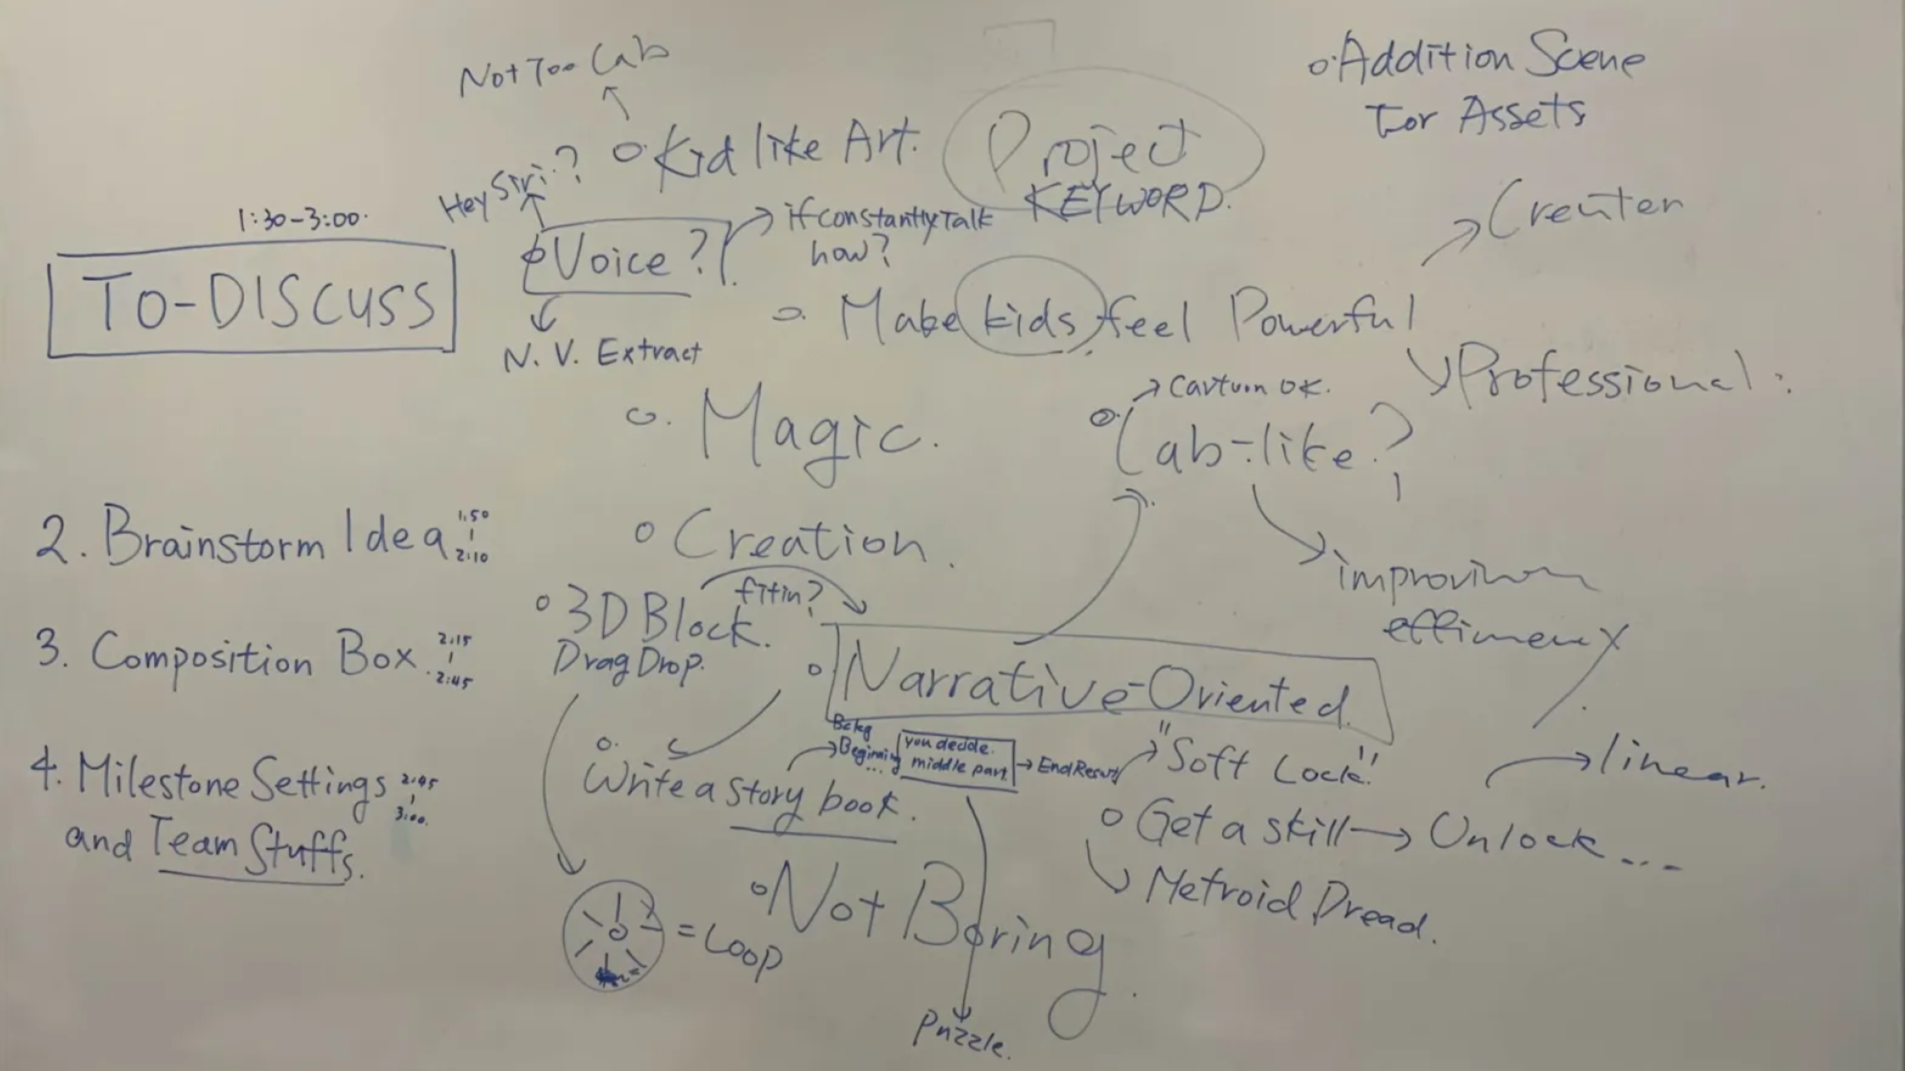 1:30-3:00.
TO-DISCUSS
2. Brainstorm Idea
1:50
2:10
3. Composition Box
2:15
2:45
4. Milestone Settings
2:45
3:00.
and Team Stuffs.
Not Too Lab
o. Kid like Art.
Project
KEYWORD.
o. Addition Scene
For Assets
Hey Siri?
Voice?
if constantly Talk
how?
N. V. Extract
o. Make kids feel Powerful
Creater
Professional.
o. Magic.
Cartoon OK.
Lab-like?
improvinen
o Creation.
o 3D Block.
Drag Drop.
fit in?
o Narrative-Oriented.
o. Write a story book.
Beginning
...
you decide.
middle part
End Result
"Soft Lock"
linear.
o Get a skill → Unlock...
Metroid Dread.
= Loop
o Not Boring.
Puzzle.